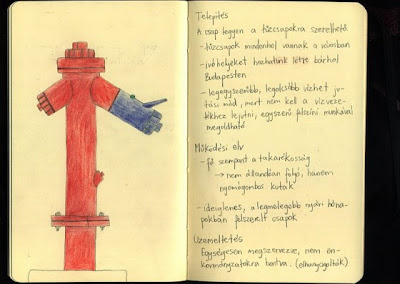 Telepítés
A csap legyen a tűzcsapokra szerelhető
- tűzcsapok mindenhol vannak a városban
- ivóhelyeket hozhatunk létre bárhol
Budapesten
- legegyszerűbb, legolcsóbb vízhez ju-
tási mód, mert nem kell a vízveze-
tékhez lejutni, egyszerű felszíni munkával
megoldható
Működési elv
- fő szempont a takarékosság
→ nem állandóan folyó, hanem
nyomógombos kutak
- ideiglenes, a legmelegebb nyári hóna-
pokban felszerelt csapok
Üzemeltetés
Egységesen megszervezve, nem ön-
kormányzatokra bontva. (elhanyagolták)